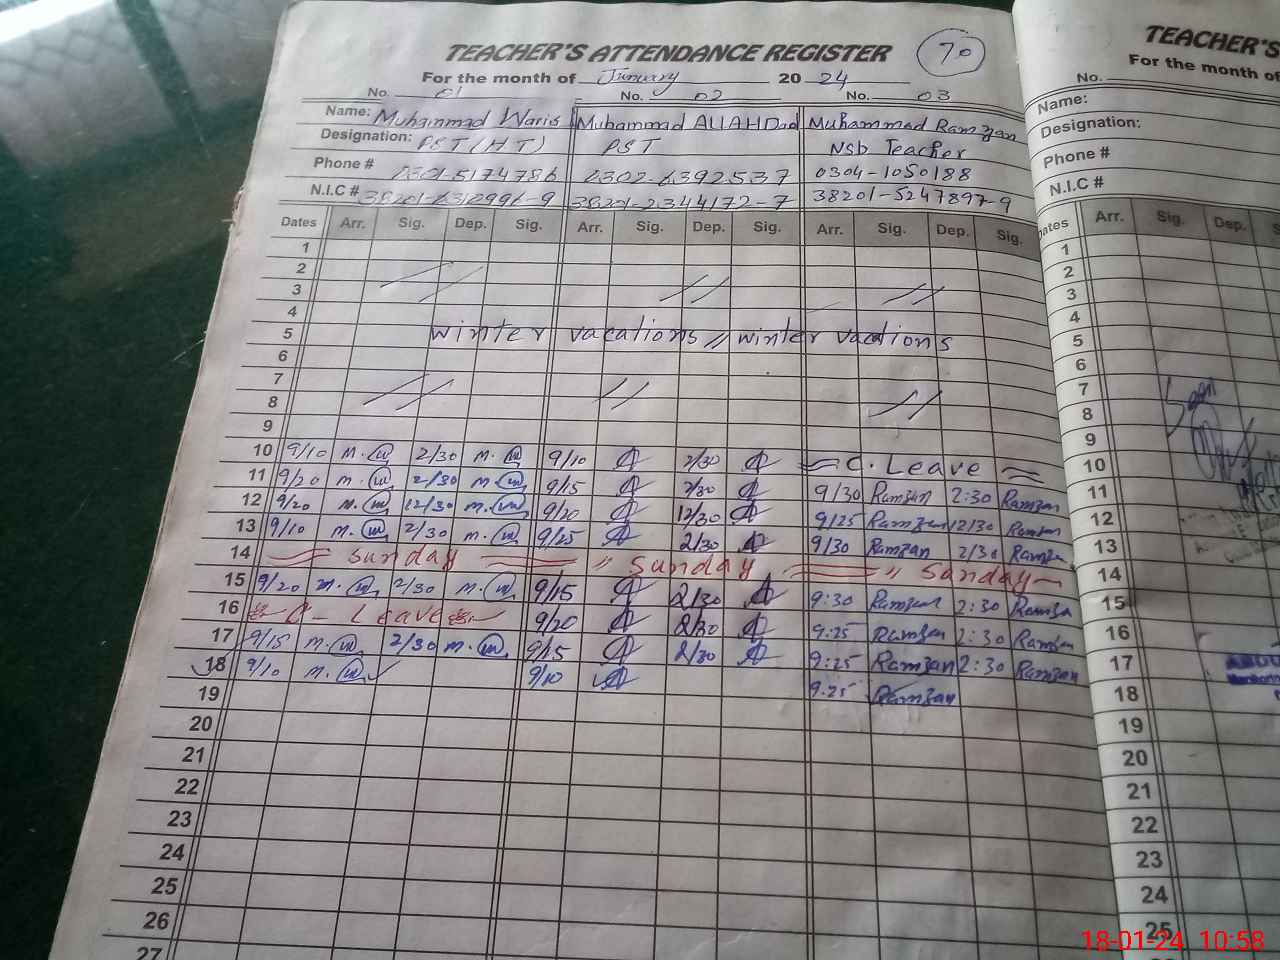 TEACHER'S ATTENDANCE REGISTER 70
For the month of January 2024
No. 01 No. 02 No. 03
Name: Muhammad Waris Muhammad ALLAH Dad Muhammad Ramzan
Designation: PST (H T) PST NSB Teacher
Phone # 0301-5174786 0302-6392537 0304-1050188
N.I.C # 38201-6310996-9 38201-2344172-7 38201-5247897-9
Dates Arr. Sig. Dep. Sig. Arr. Sig. Dep. Sig. Arr. Sig. Dep. Sig.
1
2
3
4
5 winter vacations // winter vacations
6
7
8
9
10 9/10 m. w 2/30 m. w 9/10 A 2/30 A C. Leave
11 9/20 m. w 2/30 m. w 9/15 A 2/30 A 9/30 Ramzan 2:30 Ramzan
12 9/20 m. w 12/30 m. w 9/20 A 12/30 A 9/25 Ramzan 12/30 Ramzan
13 9/10 m. w 2/30 m. w 9/25 A 2/30 A 9/30 Ramzan 2/30 Ramzan
14 Sunday // Sunday // Sunday
15 9/20 m. w 2/30 m. w 9/15 A 2/30 A 9:30 Ramzan 2:30 Ramzan
16 C - Leave 9/20 A 2/30 A 9:25 Ramzan 2:30 Ramzan
17 9/15 m. w 2/30 m. w 9/15 A 2/30 A 9:25 Ramzan 2:30 Ramzan
18 9/10 m. w 9/10 A 9:25 Ramzan
19
20
21
22
23
24
25
26
27
TEACHER'S
For the month of
No.
Name:
Designation:
Phone #
N.I.C #
Dates Arr. Sig. Dep. Sig.
1
2
3
4
5
6
7
8
9
10
11
12
13
14
15
16
17
18
19
20
21
22
23
24
25
18-01-24 10:58